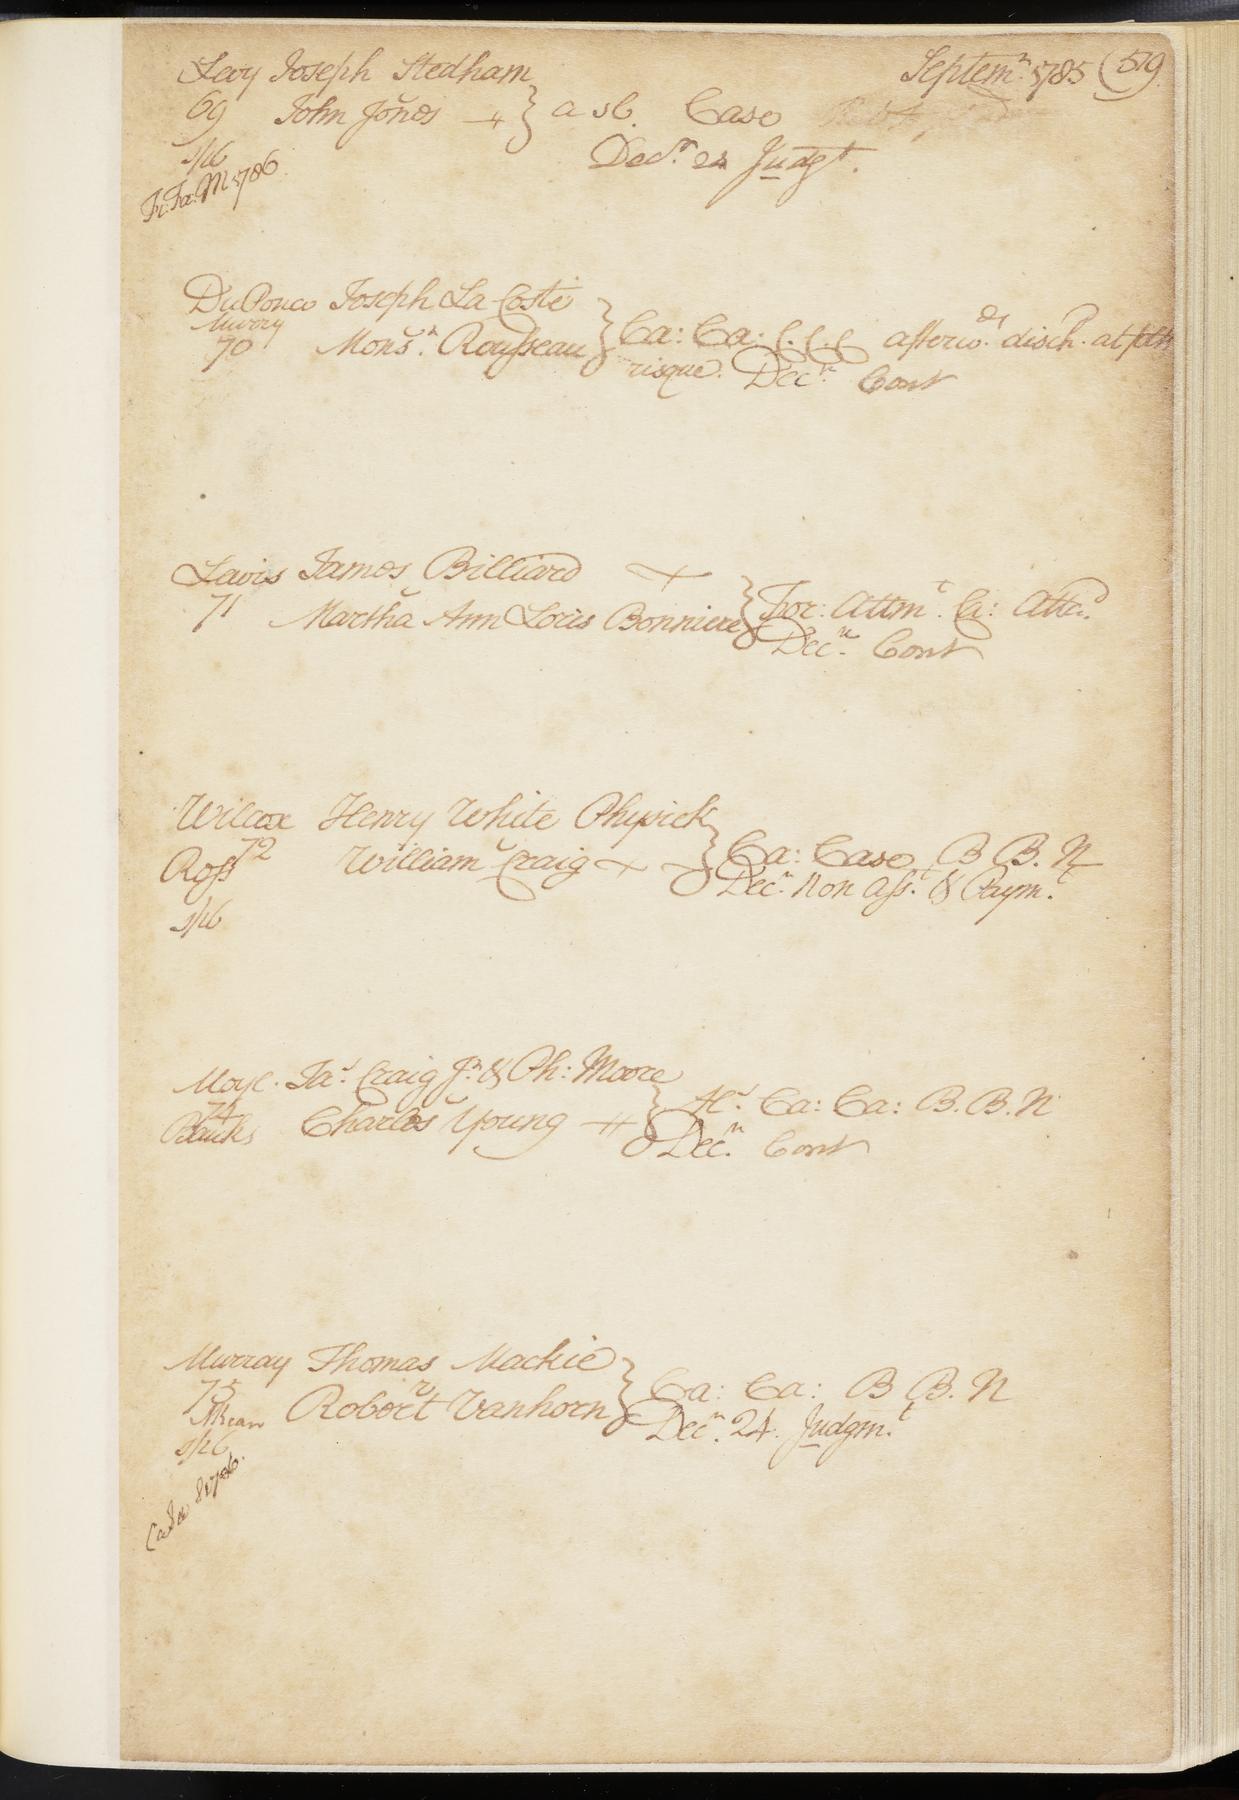 Septemr. 1785 (519
Levy Joseph Stedham
69 John Jones } a sb. Case
Decr. 24 Judgt.
Fi: Fa: M 1786
DuPonco Joseph La Coste
Murry
70 Monsr. Rousseau } Ca: Ca: C.C.C afterwds. disch. at plts
risque. Decr. Cont
Lewis James Billiard
71 Martha Ann Loris Bonniere } For: Attmt. Ca: Attd.
Decr. Cont
Wilcox Henry White Physick
72
Ross William Craig } Ca: Case B B. N
Decr. Non Asst. & Paymt.
Moyl. Jas. Craig Jr. & Ph: Moore
74
Banks Charles Young } Hs. Ca: Ca: B. B. N
Decr. Cont
Murray Thomas Mackie
75 Robert Vanhorn } Ca: Ca: B B. N
MKean
Decr. 24. Judgmt.
Ca Sa S 1786.